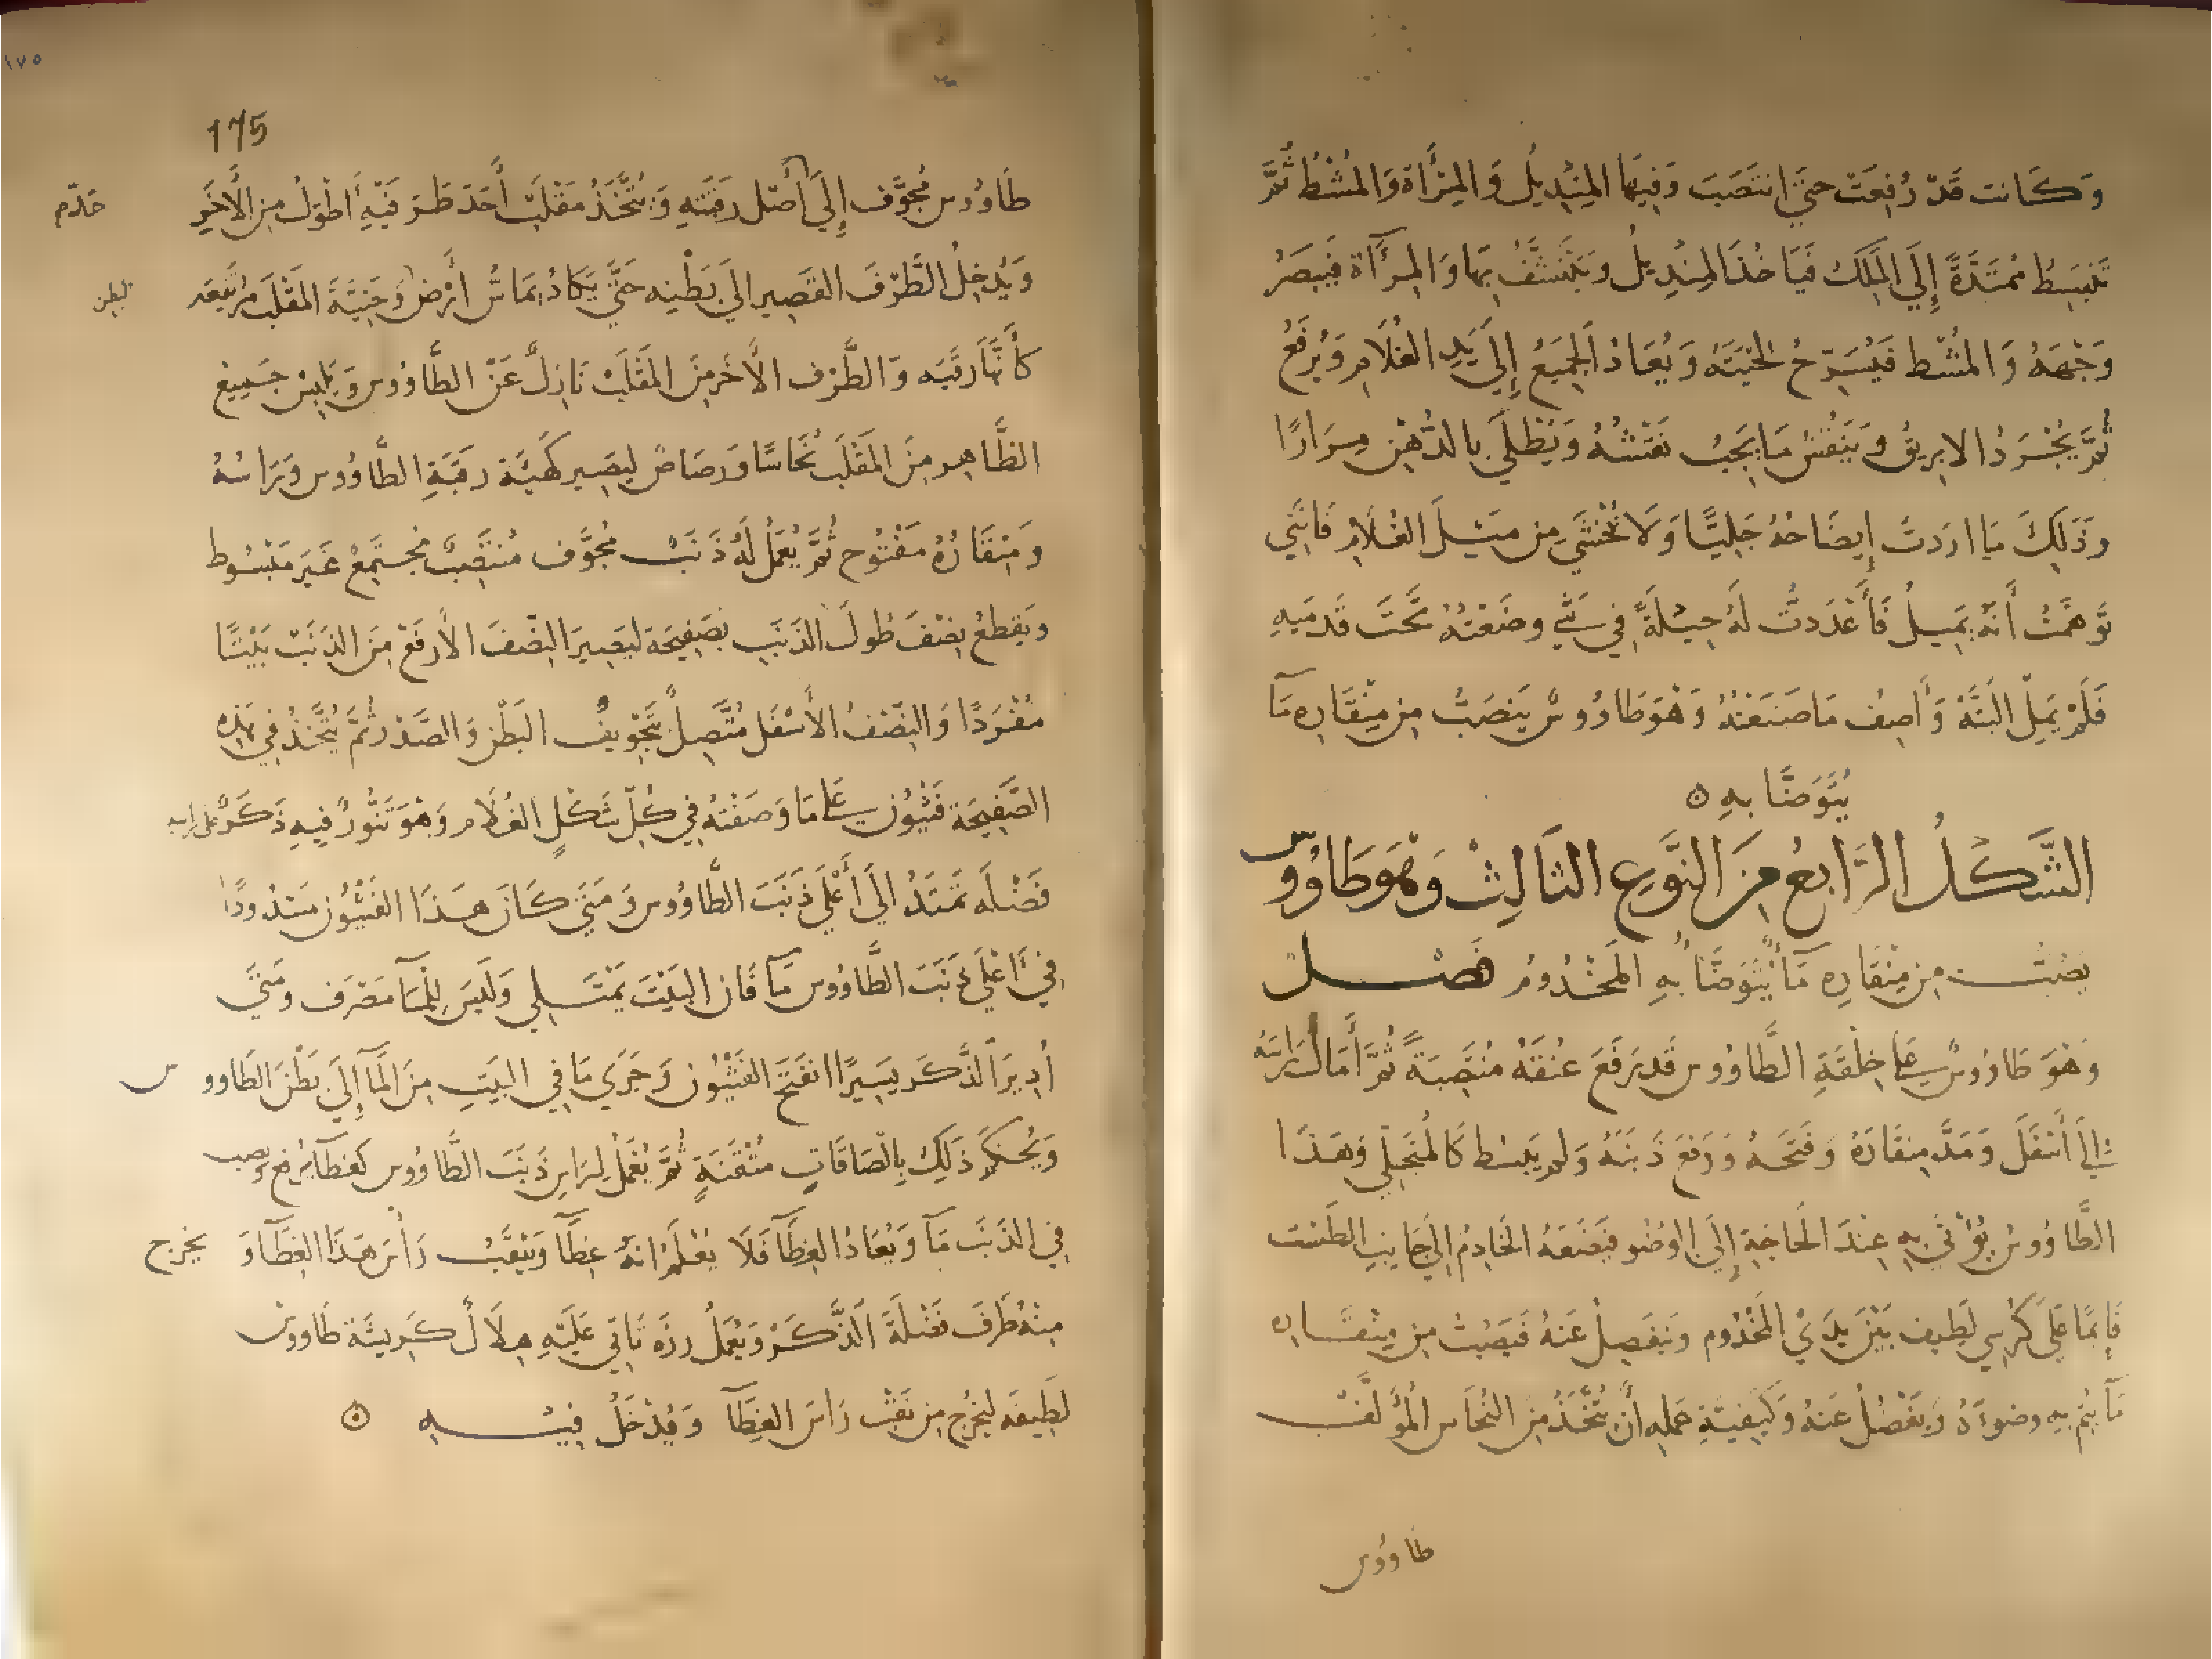 وَكَانت قَدْ رُفِعَتْ حتيَ انتَصَبَ وَفِيهَا المِنْدِيلُ وَالمِرْأَةَ وَالمُشْطُ ثُمَّ
تَنْبَسِطُ مُمْتَدَّةً إِلَي المَلِكَ فَيَاخُذَ المِنْدِيلُ وَيَتَنَشَّفُ بِهَا وَالمِرْآةَ فَيبصَرُ
وَجْهَهُ وَالمُشْط فَيُسَرِّحُ لحْيَتَهُ وَيُعَادُ الجَمِيَعُ إِلَي يَدِ الغُلَامِ وَيُرفَعُ
ثُمَّ يُجْرَدُ الابرِيقُ وَيَنْقُشُ مَا يَجِبُ نَقْشُهُ وَيُطْلَي بِالدُّهْنِ مِرَارًا
وَذَلِكَ مَا ارَدتُ إِيضَاحُهُ جَلِيًّا وَلَا تُخْشَي مِن مَيْلَ الغُلَامِ فَانَّنِي
تَوَهَّمْتُ أَنَّهُ يَمِيلُ فَأَعْدَدتُ لَهُ حِيْلَةً فِي شَيْ وضَعْتُهُ تَحَّتَ قَدمَيهِ
فَلَمْ يَمِلْ البَتَّهَ وَأَصِفُ مَا صَنَعْتُهُ وَهْوَ طَاوُوسٌ يَنصَبُّ مِن مِنْقَارِهِ مَآ
يُتَوَضَّا بهِ ۞
الشَّكْلُ الرَّابعُ مِنَ النَّوعِ الثَالِثْ وَهْوَ طَاوُوسٌ
يصُبُّ مِن مِنْقَارِهِ مَآ يُتَوَضَّا بهِ المَخْدُومُ فصْل
وَهْوَ طَاوُوسٌ عَلي خِلْقَةِ الطَّاوُوس قَد رَفَعَ عُنقَهُ مُنْتَصِبَةً ثُمَّ أَمَالَ رَاسَهُ
إِلَي أَسْفَلَ وَمَدَّ مِنقَارَهُ وَفَتَحَهُ وَرَفَعَ ذَنَبَهُ وَلم يَبسُط كَالمُنْجَلِي وَهَذَا
الطَّاوُوسُ يُؤْتَي بِهِ عِنْدَ الحَاجَةِ إِلَي الوُضُو فَيضَعَهُ الخَادِمُ إِلَي جَانِبِ الطَسْت
قَايمًا عَلَى كُرْسِي لَطِيف بَيْنَ يَدَيْ المَخْدُوم وَيَنفَصِلُ عَنهُ فَيَصُبُّ مِن مِنْقَارِه
مَآ يَتِمُّ بِهِ وضُوءَهُ وَيفْضُلُ عَنهُ وَكَيْفِيَّةِ عَملِهِ أَنْ يُتَّخَذُ مِنَ النُحَاس المُؤَلَّف
طاوُوس
١٧٥
175
طَاوُوس مُجَوَّف إِلَي أَصْل رَقَبَتِهِ وَيُتَّخَذُ مَقْلَب أَحَدَ طَرَفَيْهِ أَطْوَلُ مِن الأَخَرِ
وَيُدْخِلُ الطَّرَفَ القَصِيرِ اليَ بَطْنِه حَتَّي يَكَادُ يَمَاسُّ أرْضَ وَحَنِيَّةَ المَقْلَب مُرْتَفِعَه
لبطن
كأَنَّهَا رقبَه وَالطَّرْف الأَخَر مِنَ المَقْلَب نَازِلٌ عَنْ الطَّاوُوس وَيُلبِسْ جَمِيعْ
الظَّاهِر مِنَ المَقْلَب نُحَاسًا وَرصَاصْ لِيَصِير كَهَيْئَة رقَبَةِ الطَّاوُوس وَرَاسُهُ
وَمِنقَارُهُ مَفْتُوح ثُمَّ يُعْمَلُ لَهُ ذَنَبْ مُجَوَّف مُنْتَصِبٌ مُجتَمِعْ غَيَر مَبْسُوط
وَيقطعُ نِصْفَ طُولَ الذَنَبِ بصَفِيحَة لِيَصِيرَ النِصْفَ الأَرفَعْ مِنَ الذَنَبْ بَيْتًا
مُفْرَدًا وَالنِصْفُ الأَسْفَل مُتَّصِلٌ بتَجْوِيفُ البَطْن وَالصَّدْر ثُمَّ يُتَّخَذُ فِي هَذِهِ
الصَّفِيحَة فَثْيُون عَلي مَا وَصَفْتُهُ فِي كُلّ شَكْلِ الغُلَام وَهْوَ تَنُّورٌ فِيهِ ذَكَرٌ عَلي رَاسِهِ
فَضْلَه تَمْتَدُّ اِلَي أَعْلَي ذَنَبَ الطَّاوُوس وَمَتَي كَانَ هَذَا الفَثْيُون مَسْدُودًا
فِي أَعْلَي ذَنَبَ الطَّاوُوس مَآ فَان البَيْتَ يَمْتَلِي وَلَيَس لِلْمَآ مَصْرَف وَمَتَي
أُدِيرَ الذَّكَر يَسِيرًا انفَتَحَ الفَثْيُون وَجَرَي مَا فِي البَيتِ مِنَ المَآ إِلَي بَطْنَ الطَاووس
وَيُحْكَم ذَلِكَ بِالصَاقَاتٍ مُتْقَنَةٍ ثُمَّ يُعْمَلُ لِرَاسِ ذَنَبَ الطَّاوُوس كَغطَآ يُرفع ويصب
فِي الذَنَبَ مَآ وَيُعَادُ الغِطَآ فَلَا يُعْلَمْ انَهُ غِطَآ وَيُثقَّبُ رَأْسَ هَذَا الغِطَآ وَ يخرج
مِنْهُ طَرَفَ فَضْلَةَ الذَّكَرْ وَيُعْمَلُ رزّه تَاتي عَلَيْهِ هِلَالُ كَرِيشَة طَاووس
لَطِيفَه ليَخْرُج مِن نَقْب رَاسَ الغِطَآ وَيُدْخَلُ فِيْهِ ۞